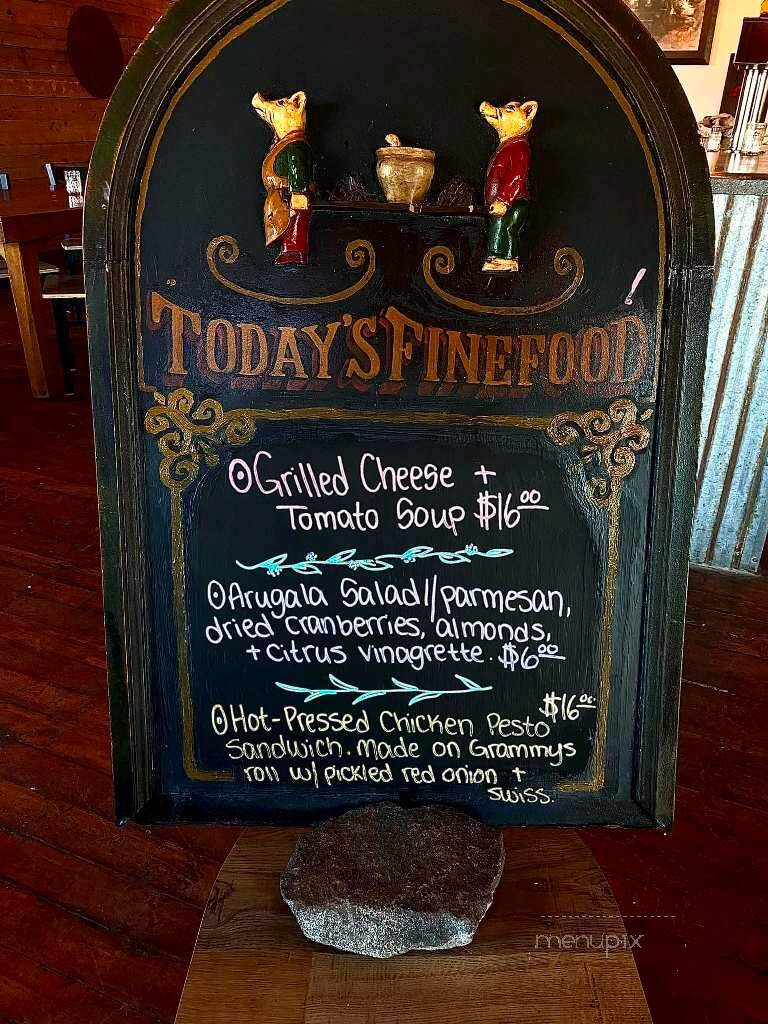 !
TODAY'S FINEFOOD
Grilled Cheese +
Tomato Soup $16.00
Arugala Salad//parmesan,
dried cranberries, almonds,
+ citrus vinagrette. $6.00
$16.00
Hot-Pressed Chicken Pesto
Sandwich. Made on Grammys
roll w/ pickled red onion +
swiss.
menupix